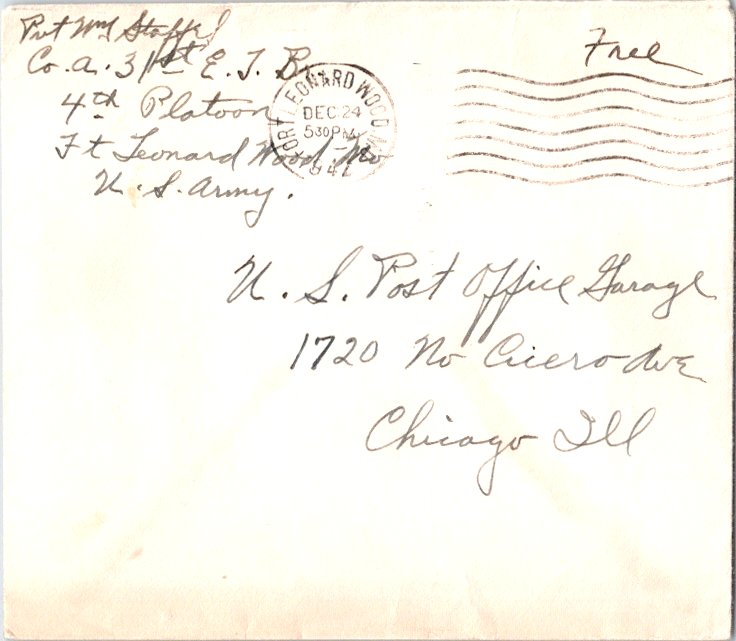 Pvt Wm Stoffel
Co. A. 31st E. T. Bn
4th Platoon
Ft Leonard Wood, Mo
U. S. Army.
Free
FORT LEONARD WOOD, MO.
DEC 24
530PM
U. S. Post Office Garage
1720 No Cicero Ave
Chicago Ill